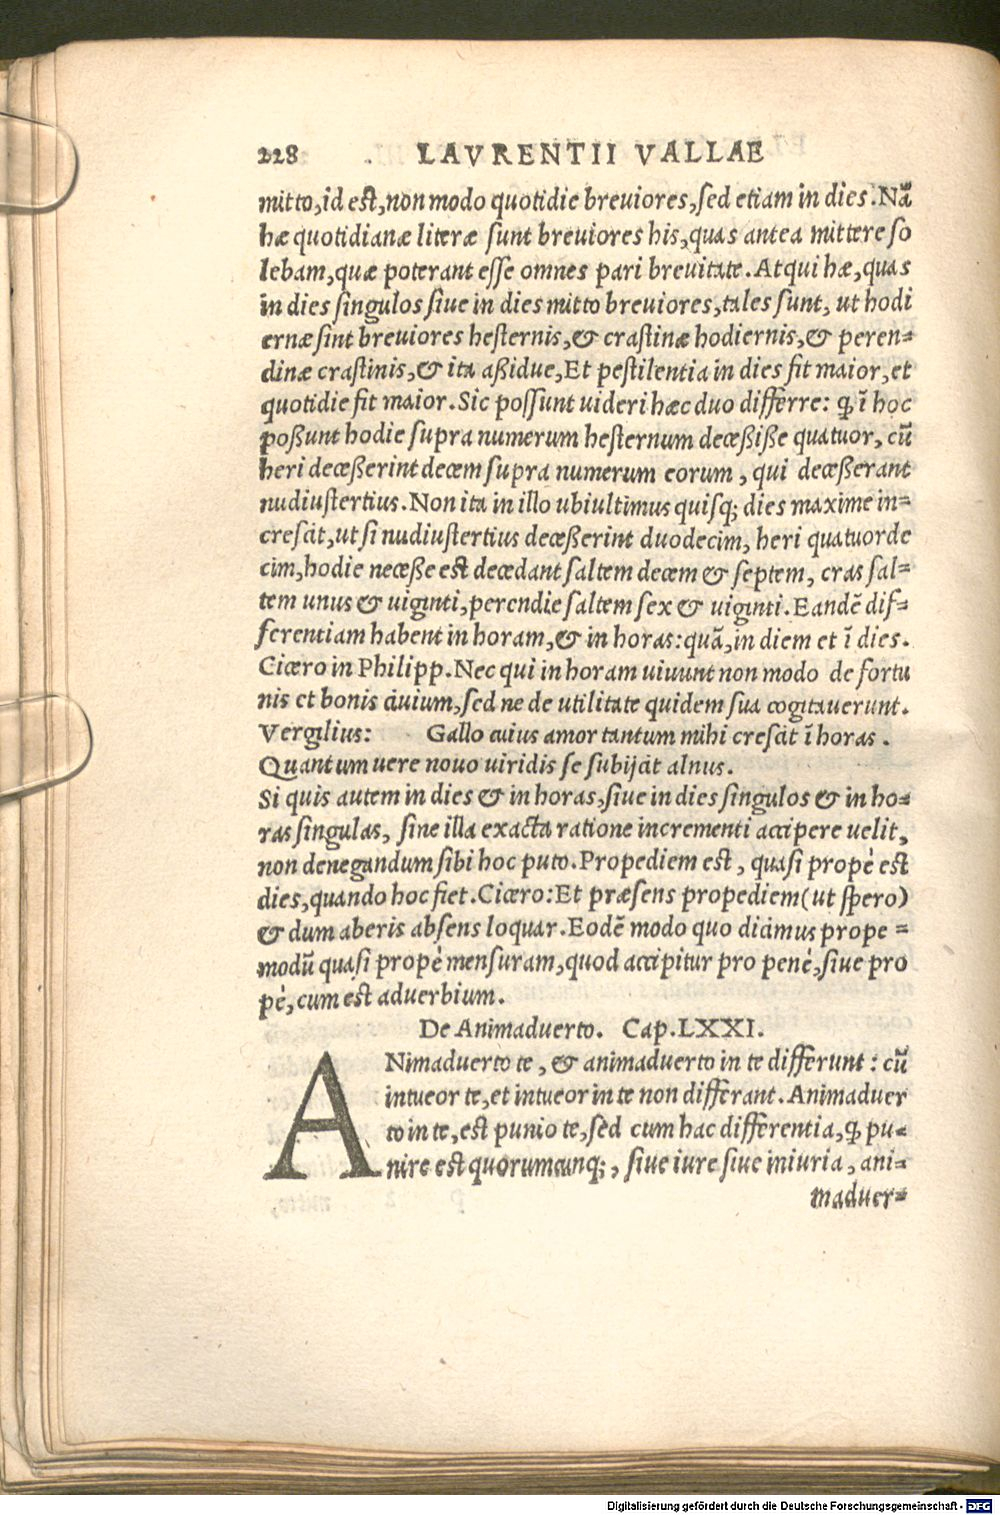 228 LAVRENTII VALLAE
mitto, id est, non modo quotidie breuiores, sed etiam in dies. Nã
hæ quotidianæ literæ sunt breuiores his, quas antea mittere so
lebam, quæ poterant esse omnes pari breuitate. Atqui hæ, quas
in dies singulos siue in dies mitto breuiores, tales sunt, ut hodi
ernæ sint breuiores hesternis, & crastinæ hodiernis, & peren=
dinæ crastinis, & ita aßidue, Et pestilentia in dies fit maior, et
quotidie fit maior. Sic possunt uideri hæc duo differre: ꝙ ĩ hoc
poßunt hodie supra numerum hesternum deceßiße quatuor, cũ
heri deceßerint decem supra numerum eorum, qui deceßerant
nudiustertius. Non ita in illo ubiultimus quisq; dies maxime in=
crescit, ut si nudiustertius deceßerint duodecim, heri quatuorde
cim, hodie neceße est decedant saltem decem & septem, cras sal=
tem unus & uiginti, perendie saltem sex & uiginti. Eandẽ dif=
ferentiam habent in horam, & in horas: quã, in diem et ĩ dies.
Cicero in Philipp. Nec qui in horam uiuunt non modo de fortu
nis et bonis ciuium, sed ne de utilitate quidem sua cogitauerunt.
Vergilius: Gallo cuius amor tantum mihi crescit ĩ horas.
Quantum uere nouo uiridis se subijcit alnus.
Si quis autem in dies & in horas, siue in dies singulos & in ho=
ras singulas, sine illa exacta ratione incrementi accipere uelit,
non denegandum sibi hoc puto. Propediem est, quasi propè est
dies, quando hoc fiet. Cicero: Et præsens propediem (ut spero)
& dum aberis absens loquar. Eodẽ modo quo dicimus prope =
modũ quasi propè mensuram, quod accipitur pro penè, siue pro
pè, cum est aduerbium.
De Animaduerto. Cap. LXXI.
ANimaduerto te, & animaduerto in te differunt: cũ
intueor te, et intueor in te non differant. Animaduer
to in te, est punio te, sed cum hac differentia, ꝙ pu=
nire est quorumcunq;, siue iure siue iniuria, ani=
maduer=
Digitalisierung gefördert durch die Deutsche Forschungsgemeinschaft - DFG